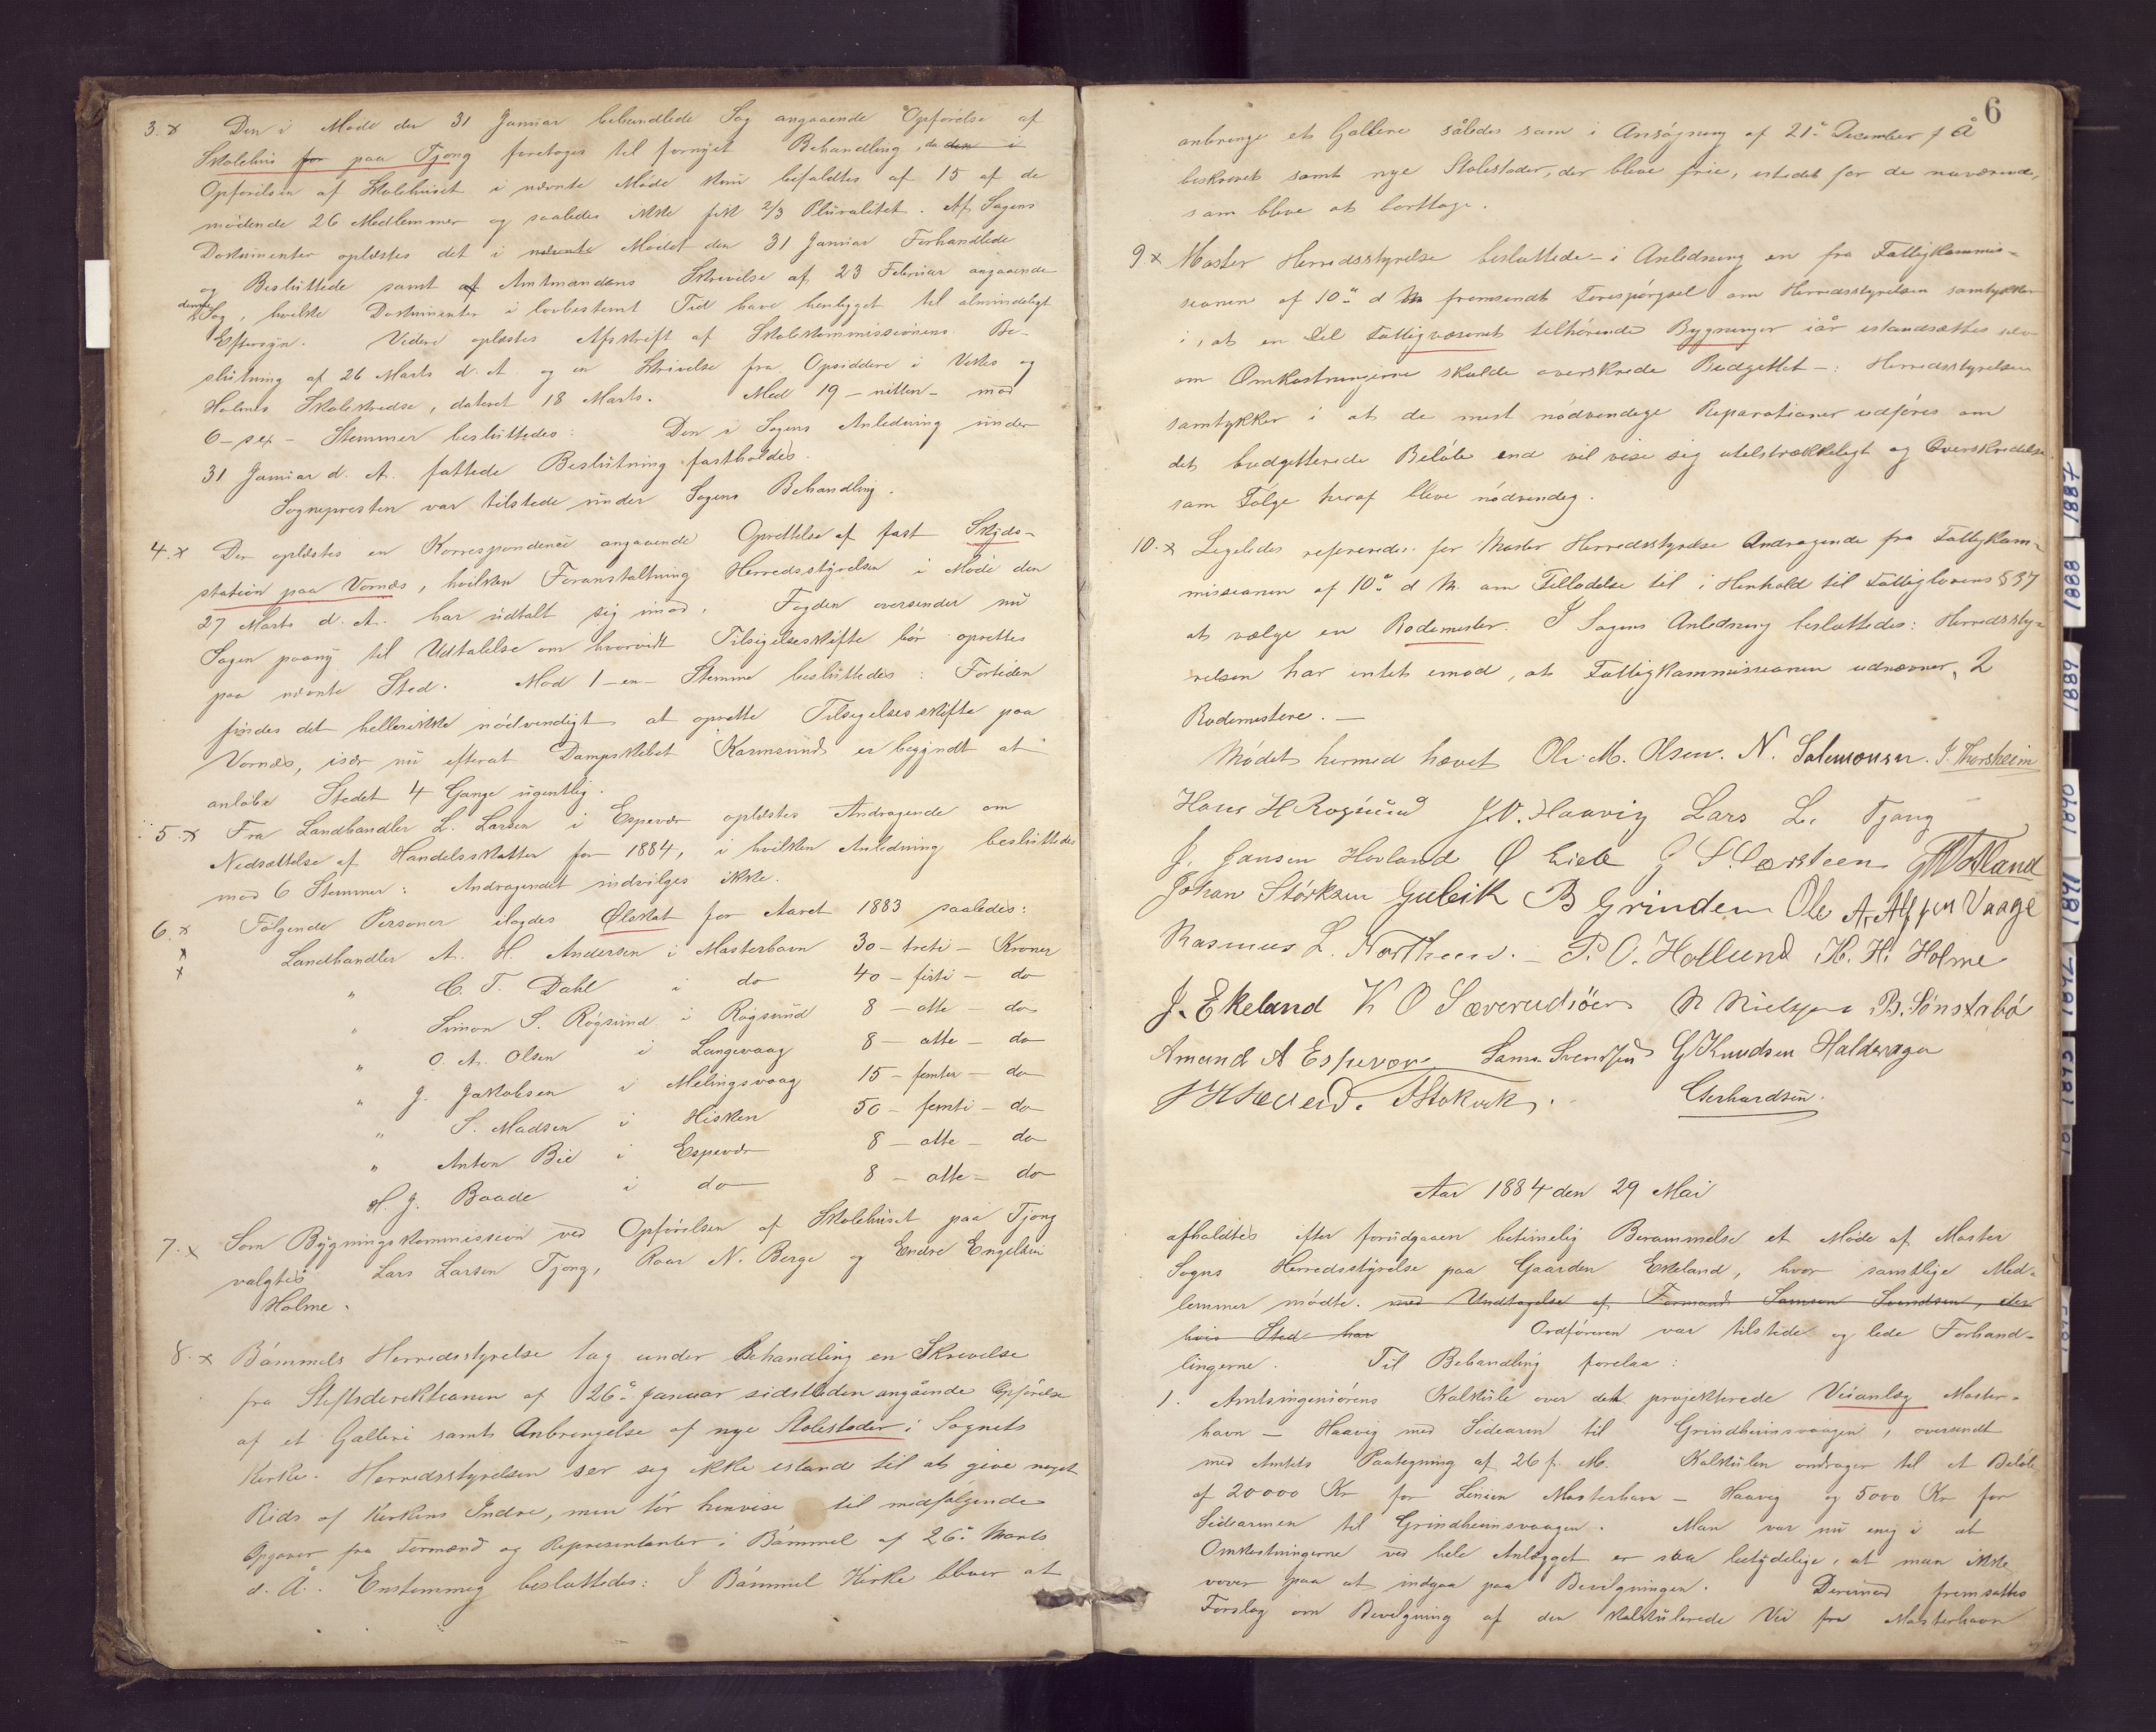 3. x Den i Møde den 31 Januar behandlede Sag angaaende Opførelse af
Skolehus for paa Tjong foretoges til fornyet Behandling, da den i
Opførelsen af Skolehuset i nævnte Møde kun bifaldtes af 15 af de
mødende 26 Medlemmer og saaledes ikke fik 2/3 Pluralitet. Af Sagens
Dokumenter oplæstes det i nævnte Mødet den 31 Januar Forhandlede
og Besluttede samt af Amtmandens Skrivelse af 23 Februar angaaende
denne Sag, hvilke Dokumenter i lovbestemt Tid have henligget til almindeligt
Eftersyn. Videre oplæstes Afskrift af Skolekommissionens Be-
slutning af 26 Marts d. A. og en Skrivelse fra Opsiddere i Vestes og
Holmes Skolekredse, dateret 18 Marts. Med 19 - nitten - mod
6 - sex - Stemmer besluttedes: Den i Sagens Anledning under
31 Januar d. A. fattede Beslutning fastholdes.
Sognepresten var tilstede under Sagens Behandling.
4. x Der oplæstes en Korrespondence angaaende Oprettelse af fast Skyds-
station paa Vornæs, hvilken Foranstaltning Herredsstyrelsen i Møde den
27 Marts d. A. har udtalt sig imod. Fogden oversender nu
Sagen paany til Udtalelse om hvorvidt Tilsigelsesskifte bør oprettes
paa nævnte Sted. Mod 1 - en - Stemme besluttedes: Fortiden
findes det hellerikke nødvendigt at oprette Tilsigelsesskifte paa
Vornæs, især nu efterat Dampskibet Karmsund er begyndt at
anløbe Stedet 4 Gange ugentlig.
5. x Fra Landhandler L. Larsen i Espevær oplæstes Andragende om
Nedsættelse af Handelsskatten for 1884, i hvilken Anledning besluttedes
mod 6 Stemmer: Andragendet indvilges ikke.
6. x Følgende Personer ilagdes Ølskat for Aaret 1883 saaledes:
x Landhandler A. H. Andersen i Mosterhavn 30 - treti - Kroner
x " C. T. Dahl i do 40 - firti - do
" Simon S. Røgsund i Røgsund 8 - otte - do
" O. A. Olsen i Langevaag 8 - otte - do
" J. Jakobsen i Melingsvaag 15 - femten - do
" S. Madsen i Hisken 50 - femti - do
" Anton Bie i Espevær 8 - otte - do
H. J. Baade i do 8 - otte - do
7. x Som Bygningskommission ved Opførelsen af Skolehuset paa Tjong
valgtes Lars Larsen Tjong, Roar N. Berge og Endre Engelsen
Holme.
8. x Bømmels Herredsstyrelse tog under Behandling en Skrivelse
fra Stiftsdirektionen af 26de Januar sidstleden angående Opførelse
af et Galleri samt Anbringelse af nye Stolestader i Sognets
Kirke. Herredsstyrelsen ser sig ikke istand til at give noget
Rids af Kirkens Indre, men tør henvise til medfølgende
Opgaver fra Formænd og Representanter i Bømmel af 26de Marts
d. Å. Enstemmig besluttedes: I Bømmel Kirke bliver at
6
anbringe et Galleri således som i Ansøgning af 21de December f Å
beskrevet samt nye Stolestader, der bleve frie, istedet for de nuværende,
som bleve at borttage.
9 x Moster Herredsstyrelse besluttede - i Anledning en fra Fattigkommis-
sionen af 10de d M fremsendt Forespørgsel om Herredsstyrelsen samtykker
i, at en Del Fattigvæsenet tilhørende Bygninger iår istandsættes selv
om Omkostningerne skulde overskride Budgettet -: Herredsstyrelsen
samtykker i at de mest nødvendige Reparationer udføres om
det budgetterede Beløb end vil vise sig utilstrækkeligt og Overskridelse
som Følge heraf bleve nødvendig.
10. x Ligeledes refereredes for Moster Herredsstyrelse Andragende fra Fattigkom-
missionen af 10de d M. om Tilladelse til i Henhold til Fattiglovens § 37
at vælge en Rodemester. I Sagens Anledning besluttedes: Herredssty-
relsen har intet imod, at Fattigkommissionen udnævner 2
Rodemestere. -
Mødet hermed hævet Ole M. Olsen. N. Salemonsen. J. Thorsheim
Hans H Røgsund J. V. Haavig Lars L. Tjong
J. Jansen Hovland Ø Lie
Johan Størksen Guleik B Grinden Ole A. Alfsen Vaage
Rasmus L. P. O. Hollund K. H. Holme
J. Ekeland K O Sæverudsøen N Nielsen B. Sønstabø
Amund A Espevær Sams. Svendsen G Knudsen Halderager
A Stokvik. Gerhardsen.
Aar 1884 den 29 Mai
afholdtes efter forudgaaen betimelig Berammelse et Møde af Moster
Sogns Herredsstyrelse paa Gaarden Ekeland, hvor samtlige Med-
lemmer mødte. med Undtagelse af Formand Samson Svendsen, i
hvis Sted har Ordføreren var tilstede og lede Forhand-
lingerne. Til Behandling forelaa:
1. Amtsingeniørens Kalkule over det projekterede Veianlæg Moster-
havn - Haavig med Sidearm til Grindheimsvaagen, oversendt
med Amtets Paategning af 26 f. M. Kalkulen andrager til et Beløb
af 20000 Kr for Linien Mosterhavn - Haavig og 5000 Kr for
Sidearmen til Grindheimsvaagen. Man var nu enig i at
Omkostningerne ved hele Anlægget er saa betydelige, at man ikke
vover paa at indgaa paa Bevilgningen. Derimod fremsattes
Forslag om Bevilgning af den kalkulerede Vei fra Mosterhavn
1887
1888
1889
1890
1891
1892
1893